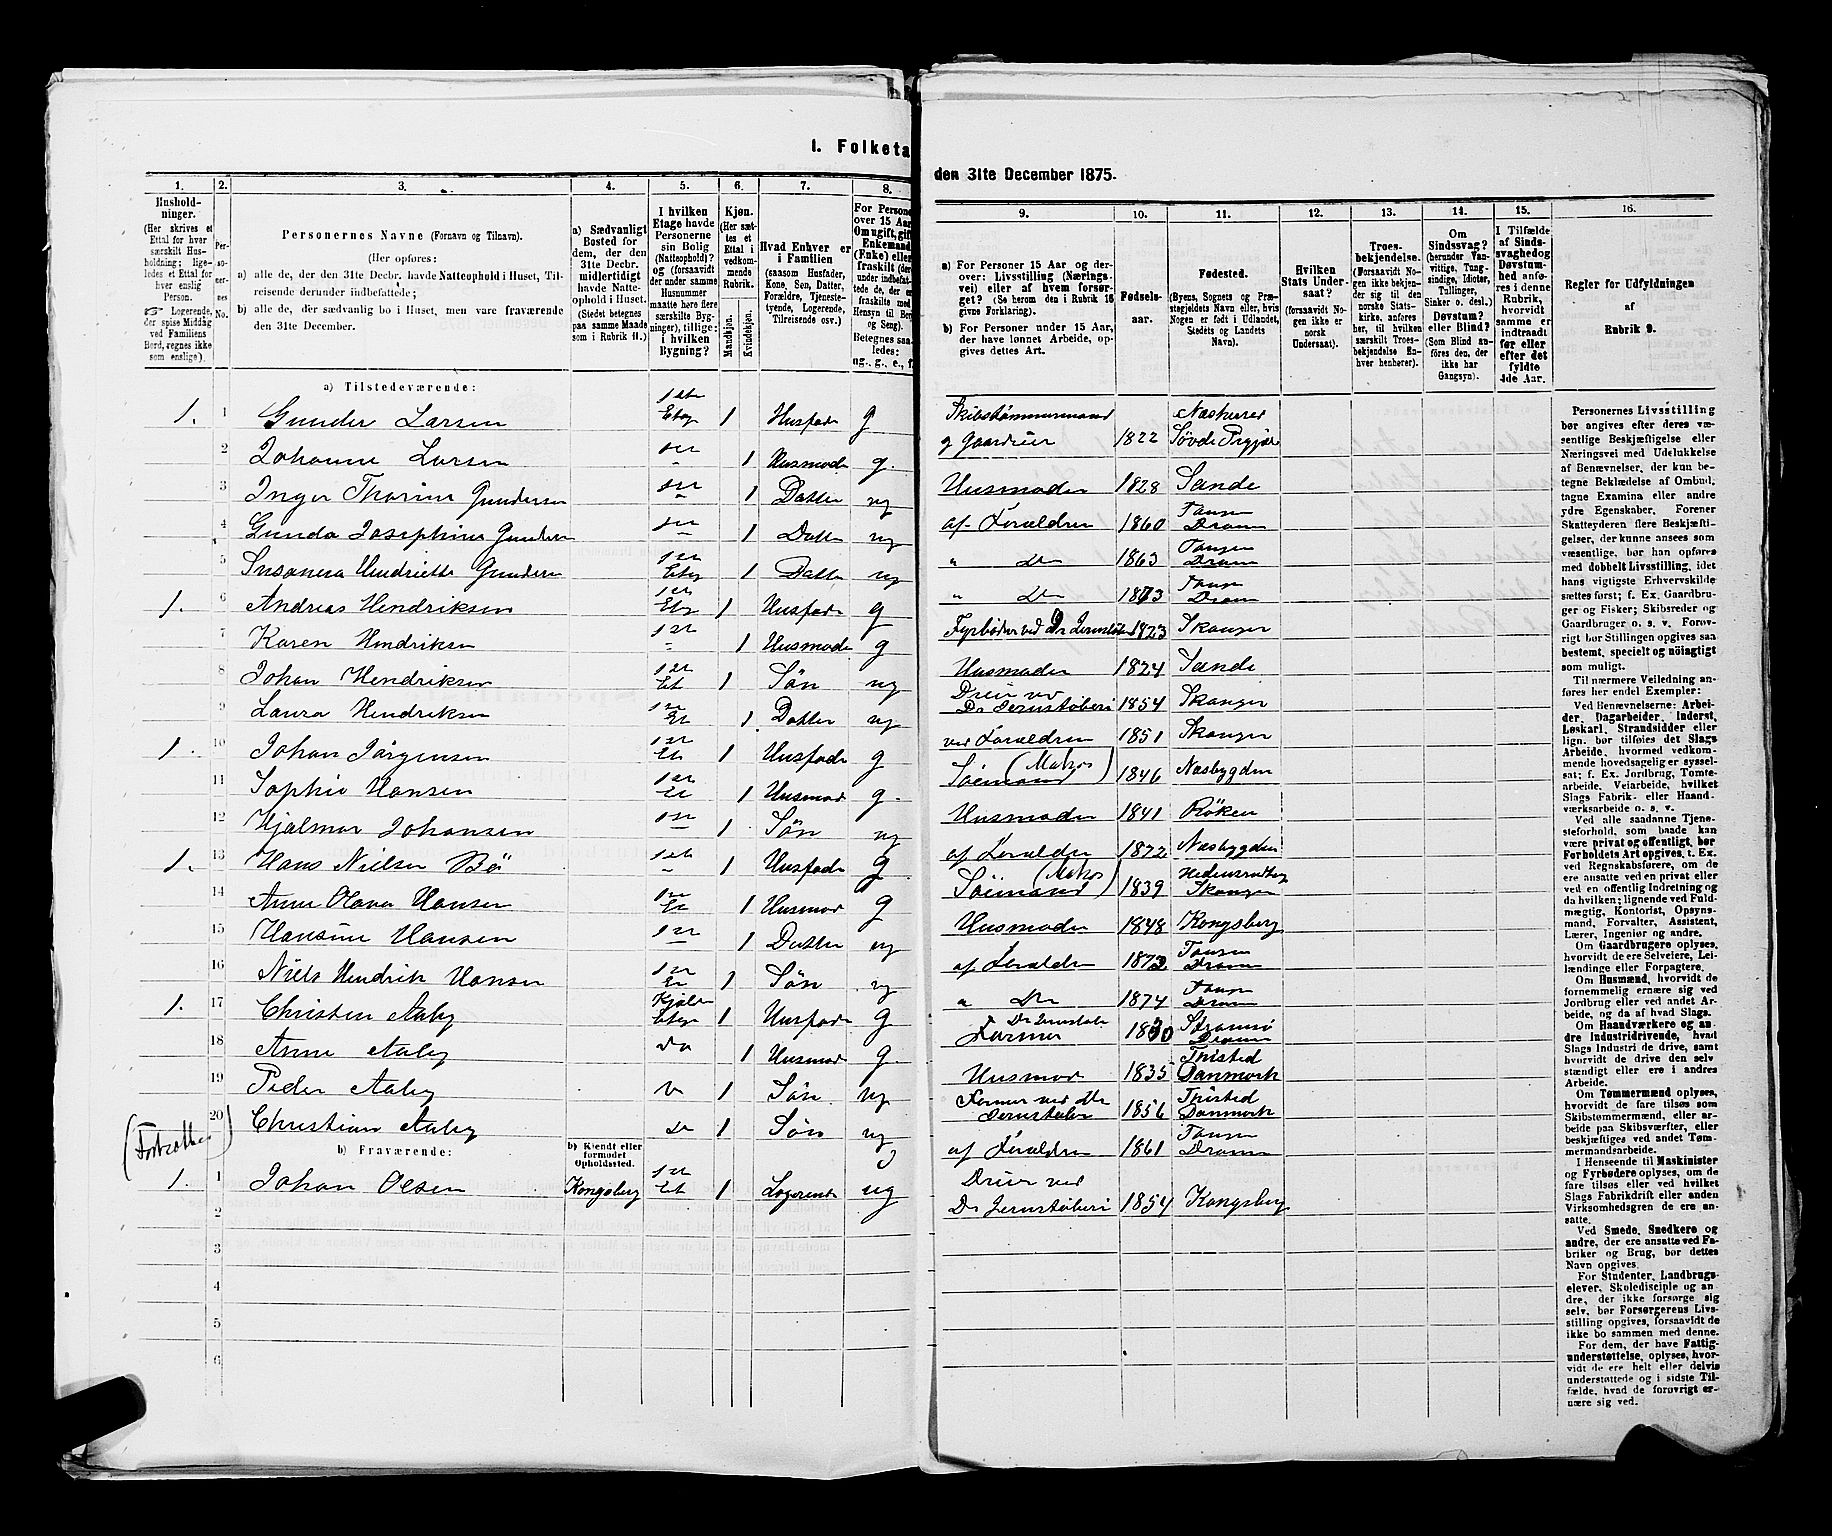 I. Folketa
den 31te December 1875.
1.
Husholdninger.
(Her skrives et Ettal for hver særskilt Husholdning; ligeledes et Ettal for hver enslig Person.
☞ Logerende, der spise Middag ved Familiens Bord, regnes ikke som enslige).
2.
Personernes No.
3.
Personernes Navne (Fornavn og Tilnavn).
(Her opføres:
a) alle de, der den 31te Decbr. havde Natteophold i Huset, Tilreisende derunder indbefattede;
b) alle de, der sædvanlig bo i Huset, men vare fraværende den 31te December.
4.
a) Sædvanligt Bosted for dem, der den 31te Decbr. midlertidigt havde Natteophold i Huset. (Stedet betegnes paa samme Maade som i Rubrik 11.)
5.
I hvilken Etage havde Personerne sin Bolig (Natteophold)? og (forsaavidt der under samme Husnummer maatte høre flere særskilte Bygninger), tillige: i hvilken Bygning?
6.
Kjøn.
(Her sættes et Ettal i vedkommende Rubrik.
Mandkjøn.
Kvindekjøn.
7.
Hvad Enhver er i Familien
(saasom Husfader, Kone, Søn, Datter, Forældre, Tjenestetyende, Logerende, Tilreisende osv.)
8.
For Person
over 15 Aar
Om ugift, gift
Enkemand
(Enke) eller
fraskilt (der
under indbefat
tede de, der ere
fraskilte med
Hensyn til Bord
og Seng).
Betegnes saa-
ledes:
ug., g., e., f.
9.
a) For Personer 15 Aar og derover: Livsstilling (Næringsvei) eller af hvem forsørget? (Se herom den i Rubrik 16 givne Forklaring).
b) For Personer under 15 Aar, der have lønnet Arbeide, opgives dettes Art.
10.
Fødselsaar.
11.
Fødested.
(Byens, Sognets og Præstegjeldets Navn eller, hvis Nogen er født i Udlandet, Stedets og Landets Navn).
12.
Hvilken Stats Undersaat?
(forsaavidt Nogen ikke er norsk Undersaat).
13.
Troesbekjendelse.
(Forsaavidt Nogen ikke bekjender sig til den norske Statskirke, anføres her, til hvilken særskilt Troesbekjendelse Enhver henhører).
14.
Om Sindssvag? (herunder Vanvittige, Tungsindige, Idioter, Tullinger, Sinker o. desl.) Døvstum? eller Blind? (Som Blind anføres den, der ikke har Gangsyn).
15.
I Tilfælde af Sindssvaghed og Døvstumhed anføres i denne Rubrik, hvorvidt samme er indtraadt før eller efter det fyldte 4de Aar.
16.
Regler for Udfyldningen
af
Rubrik 9.
a) Tilstedeværende:
1. 1 Gunder Larsen 1ste Etag 1 Husfade g Skibstømmermand g Gaardeier 1822 Næskirer Søvde Prgjæl
2 Johanne Larsen 1 Husmode g. Husmoder 1828 Sande
3 Inger Thorine Gundersen 1 Datter ug af Foraldre 1860 Tangen Dram
4 Gunda Josephine Gundersen 1 Datte ug " Do 1863 Tangen Dram
5 Susanna Hendriette Gundersen Etag 1 Datte ug " Do 1873 Tangen Dram
1. 6 Andreas Hendriksen 1ste Etg 1 Husfade g Fyrbøder ved Dr Jernstøb 1823 Skanger
7 Karen Hendriksen 1 Husmode g Husmoder 1824 Sande
8 Johan Hendriksen 1ste Et 1 Søn ug Dreier ved Dr Jernstøberi 1854 Skanger
9 Laura Hendriksen Et 1 Datter ug ved Foraldren 1851 Skanger
1. 10 Johan Jørgensen Et 1 Husfade g Sømand (Matros) 1846 Næsbygden
11 Sophie Hansen Et 1 Husmod g. Husmoder 1841 Røken
12 Hjalmar Johansen 1 Søn ug af Foraldre 1872 Næsbygden
1. 13 Hans Nielsen Bö 1ste 1 Husfade g. Sømand (Matros) 1839 Skanger
14 Anne Olava Hansen Et 1 Husmod g Husmoder 1848 Kongsberg
15 Hansine Hansen 1 Datter ug af Foraldre 1873 Tangen Dram
16 Niels Hendrik Hansen Et 1 Søn ug " Do 1874 Tangen Dram
1. 17 Christen Aaby Kjelder Etage 1 Husfade g Former Dr Jernstøbe 1830 Strømsø Dram
18 Anne Aaby Do 1 Husmod g. Husmod 1835 Thisted Danmark
19 Peder Aaby 1 Søn ug Former ved Dr Jernstøber 1856 Thisted Danmark
20 Christian Aaby Do 1 Søn ug af Foraldre 1861 Tangen Dram
b) Fraværende:
b) Kjendt eller formodet Opholdssted.
1. 1 Johan Olsen Kongsberg 1ste Et 1 Logerende ug Dreier ved Dr Jernstøberi 1854 Kongsberg
2
3
4
5
6
Personernes Livsstilling
bør angives efter deres væsentlige Beskjæftigelse eller
Næringsvei med Udelukkelse
af Benævnelser, der kun betegne Beklædelse af Ombud,
tagne Examina eller andre
ydre Egenskaber. Forener
Skatteyderen flere Beskjæftigelser, der kunne ansees som
væsentlige, bør han opføres
med dobbelt Livsstilling, idet
hans vigtigste Erhvervskilde
sættes først; f. Ex. Gaardbruger og Fisker; Skibsreder og
Gaardbruger o. s. v. Forøvrigt bør Stillingen opgives saa
bestemt, specielt og nöiagtigt
som muligt.
Til nærmere Veiledning anføres her endel Exempler:
Ved Benævnelserne: Arbeider, Dagarbeider, Inderst,
Løskarl, Strandsidder eller
lign. bør tilføies det Slags
Arbeide, hvormed vedkommende hovedsagelig er sysselsat; f. Ex. Jordbrug, Tomtearbeide, Veiarbeide, hvilket
Slags Fabrik- eller Haandværksarbeide o. s. v.
Ved alle saadanne Tjenesteforhold, som baade kan
være privat og offentligt, bør
Forholdets Art opgives, t. Ex.
ved Regnskabsførere, om de
ere ansatte ved en privat eller
ved en offentlig Indretning og
da hvilken; lignende ved Fuldmægtig, Kontorist, Opsynsmand, Forvalter, Assistent,
Lærer, Ingeniør og andre.
Om Gaardbrugere oplyses,
hvorvidt de ere Selveiere, Leilændinge eller Forpagtere.
Om Husmænd, hvorvidt de
fornemmelig ernære sig ved
Jordbrug eller ved andet Arbeide, og da af hvad Slags.
Om Haandværkere og andre Industridrivende, hvad
Slags Industri de drive, samt
hvorvidt de drive den selvstændigt eller ere i andres
Arbeide.
Om Tømmermænd oplyses,
hvorvidt de fare tilsøs som
Skibstømmermænd, eller arbeide paa Skibsværfter, eller
beskjæftiges ved andet Tømmermandsarbeide.
I Henseende til Maskinister
og Fyrbødere oplyses, om de
fare tilsøs eller ved hvilket
Slags Fabrikdrift eller anden
Virksomhedsgren de ere ansatte.
Ved Smede, Snedkere og
andre, der ere ansatte ved Fabriker og Brug, bør dettes
Navn opgives.
For Studenter, Landbrugselever, Skoledisciple og andre, der ikke forsørge sig
selv, bør Forsørgerens Livsstilling opgives, forsaavidt de
ikke bo sammen med denne.
For dem, der have Fattigunderstøttelse, oplyses, hvorvidt de ere helt eller delvis
understøttede og i sidste Tilfælde, hvad de forøvrigt ernære sig ved.